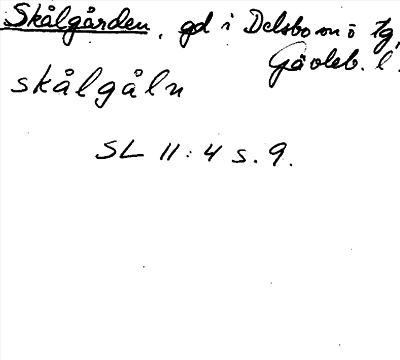 Skålgården, gd i Delsbo sn ö tg,
Gävleb. l.
skålgåln
SL 11:4 s. 9.